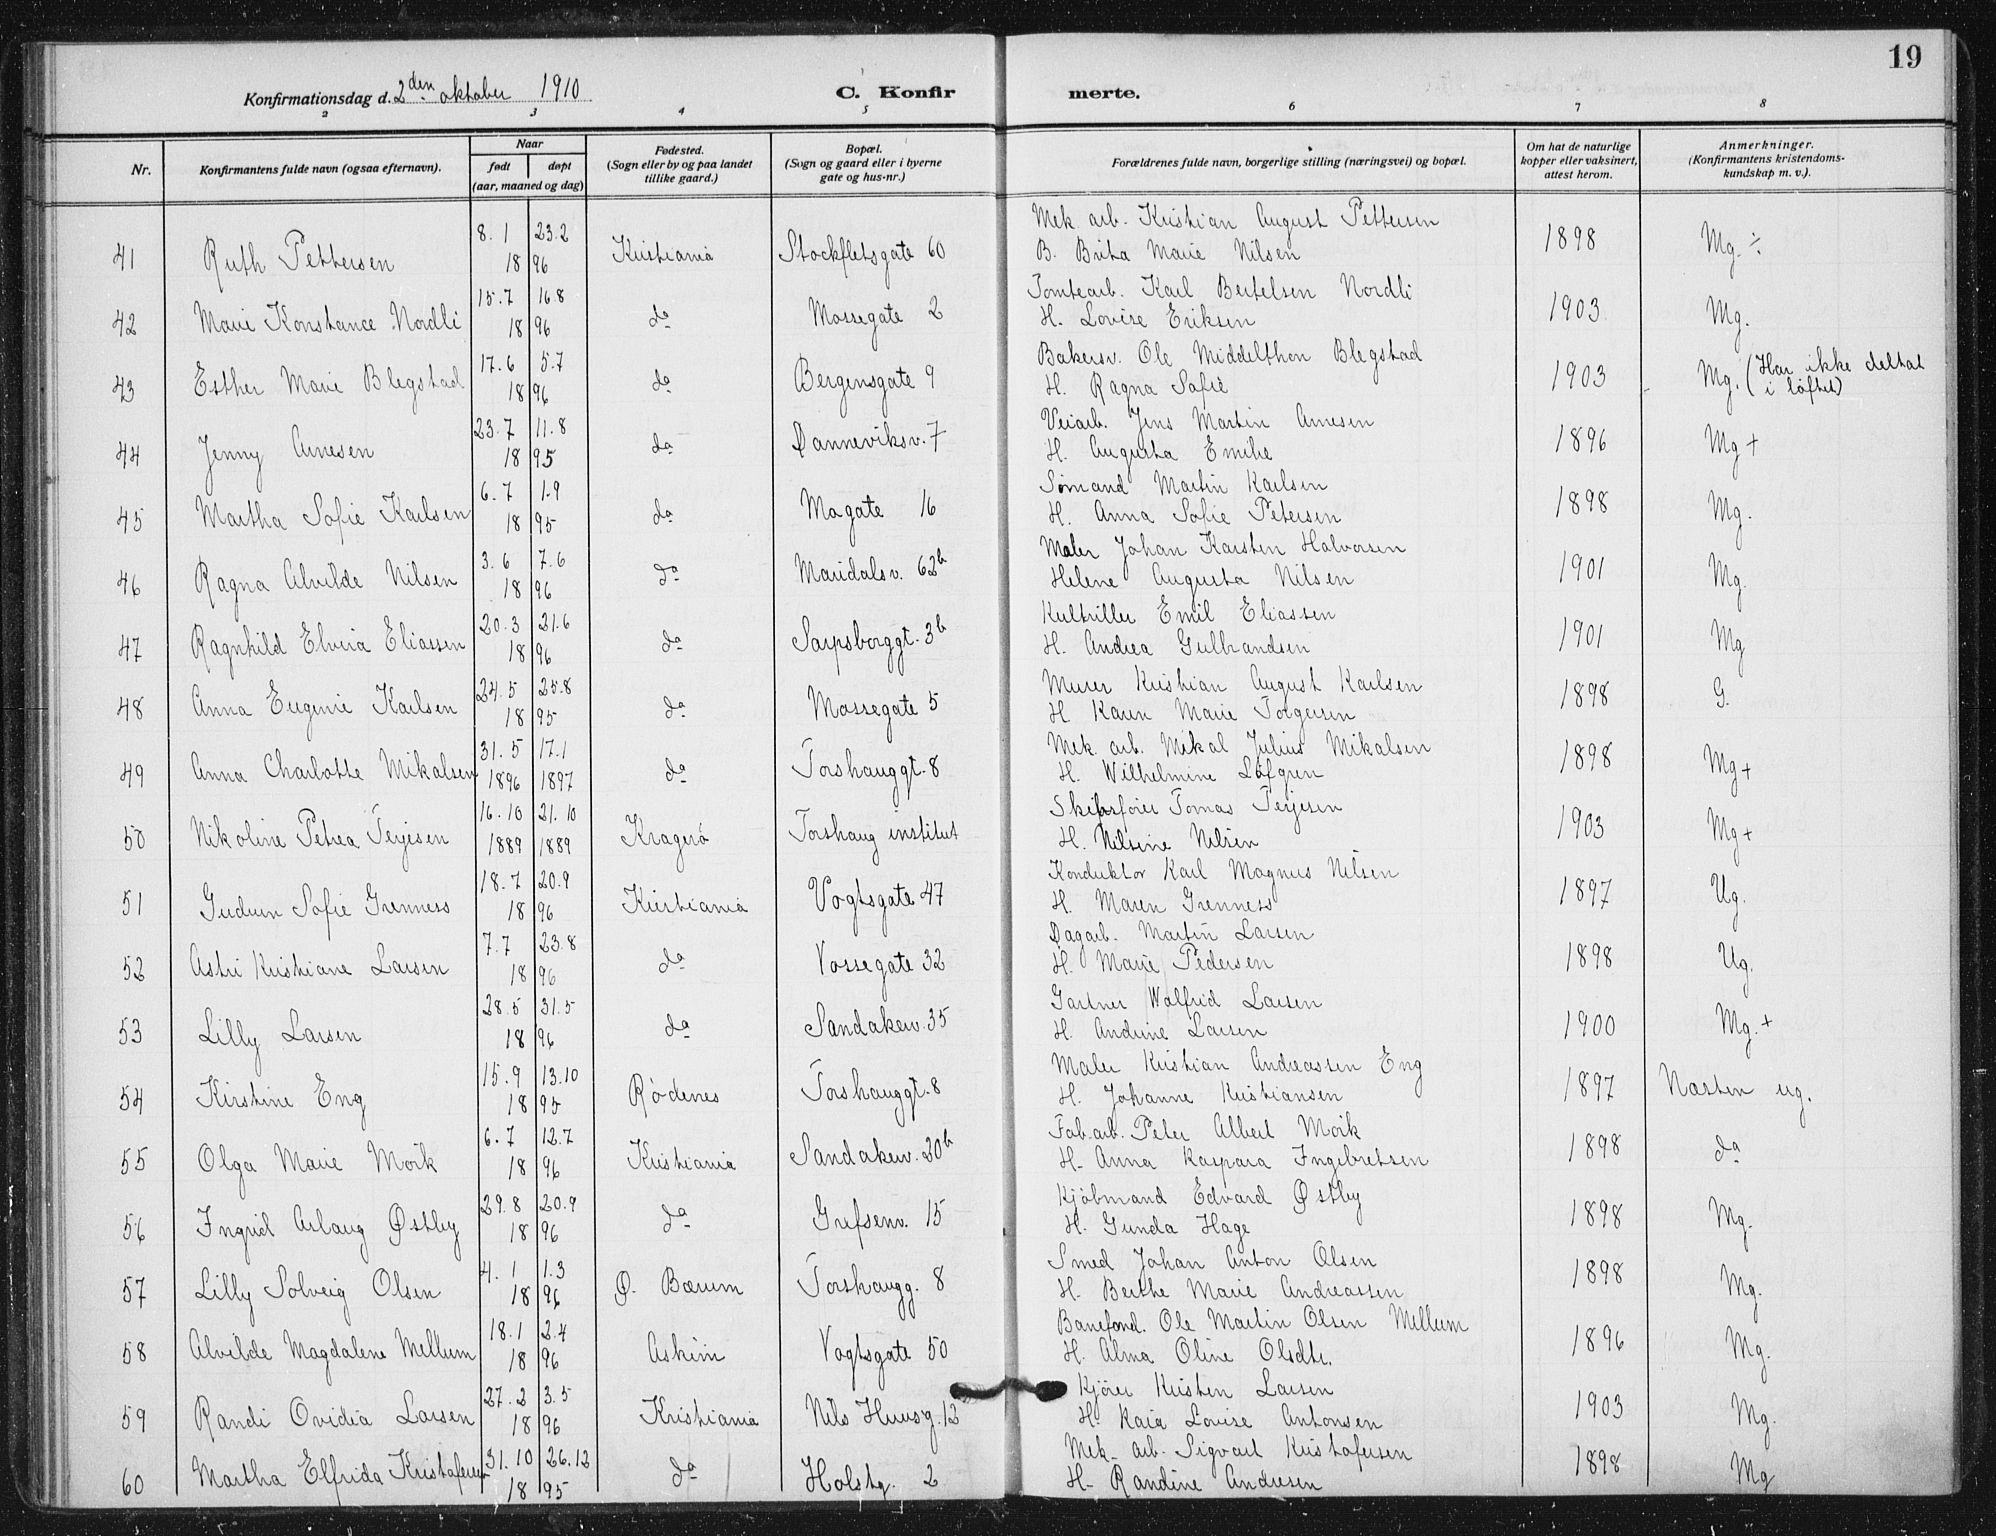 19
Konfirmationsdag d. 2den oktober 1910
C. Konfirmerte.
2 3 4 5 6 7 8
Nr.
Konfirmantens fulde navn (ogsaa efternavn).
Naar
født døpt
(aar, maaned og dag)
Fødested.
(Sogn eller by og paa landet
tillike gaard.)
Bopæl.
(Sogn og gaard eller i byerne
gate og hus-nr.)
Forældrenes fulde navn, borgerlige stilling (næringsvei) og bopæl.
Om hat de naturlige
kopper eller vaksinert,
attest herom.
Anmerkninger.
(Konfirmantens kristendoms-
kundskap m. v.).
8.1 23.2 Mek. arb. Kristian August Pettersen
41 Ruth Pettersen 18 96 Kristiania Stockfletsgate 60 B. Brita Marie Nilsen 1898 Mg. ÷
15.7 16.8 Tomtearb. Karl Bertelsen Nordli
42 Marie Konstance Nordli 18 96 da Mossegate 2 H. Lovise Eriksen 1903 Mg.
17.6 5.7 Bakersv. Ole Middelthon Blegstad
43 Esther Marie Blegstad 18 96 da Bergensgate 9 H. Ragna Sofie 1903 Mg. (Har ikke deltat
i løftet)
23.7 11.8 Veiarb. Jens Martin Arnesen
44 Jenny Arnesen 18 95 da Danneviksv. 7 H. Augusta Emilie 1896 Mg +
6.7 1.9 Sømand Martin Karlsen
45 Martha Sofie Karlsen 18 95 da Mogate 16 H. Anna Sofie Petersen 1898 Mg.
3.6 7.6 Maler Johan Karsten Halvorsen
46 Ragna Alvilde Nilsen 18 96 da Maridalsv. 62b Helene Augusta Nilsen 1901 Mg.
20.3 21.6 Emil Eliassen
47 Ragnhild Elvira Eliassen 18 96 da Sarpsborggt. 3b H. Andrea Gulbrandsen 1901 Mg
24.5 25.8 Murer Kristian August Karlsen
48 Anna Eugenie Karlsen 18 95 da Mossegate 5 H. Karen Marie Torgersen 1898 G.
31.5 17.1 Mek. arb. Mikal Julius Mikalsen
49 Anna Charlotte Mikalsen 1896 1897 da Torshauggt. 8 H. Wilhelmine Løfgren 1898 Mg +
16.10 21.10 Skibsfører Tomas Terjesen
50 Nikoline Petrea Terjesen 1889 1889 Kragerø Torshaug institut H. Nilsine Nilsen 1903 Mg +
18.7 20.9 Konduktør Karl Magnus Nilsen
51 Gudrun Sofie Grenness 18 96 Kristiania Vogtsgate 47 H. Maren Grenness 1897 Ug.
7.7 23.8 Dagarb. Martin Larsen
52 Astri Kristiane Larsen 18 96 da Vossegate 32 H. Marie Pedersen 1898 Ug.
28.5 31.5 Gartner Walfrid Larsen
53 Lilly Larsen 18 96 da Sandakerv. 35 H. Andrine Larsen 1900 Mg. +
15.9 13.10 Maler Kristian Andreassen Eng
54 Kirstine Eng 18 95 Rødenes Torshauggt. 8 H. Johanne Kristiansen 1897 Næsten ug.
6.7 12.7 Fab. arb. Peter Albert Mørk
55 Olga Marie Mørk 18 96 Kristiania Sandakerv. 20b H. Anna Kaspara Ingebretsen 1898 da
29.8 20.9 Kjøbmand Edvard Østby
56 Ingrid Aslaug Østby 18 96 da Grefsenv. 15 H. Gunda Hage 1898 Mg.
4.1 1.3 Smed Johan Anton Olsen
57 Lilly Solveig Olsen 18 96 Ø. Bærum Torshaugg. 8 H. Berthe Marie Andreassen 1898 Mg.
18.1 2.4 Baneform. Ole Martin Olsen Mellum
58 Alvilde Magdalene Mellum 18 96 Askim Vogtsgate 50 H. Alma Oline Olsdtr. 1896 Mg.
27.2 3.5 Kjører Kristen Larsen
59 Randi Ovidia Larsen 18 96 Kristiania Nils Huusg. 12 H. Kaia Lovise Antonsen 1903 Mg.
31.10 26.12 Mek. arb. Sigvart Kristofersen
60 Martha Elfrida Kristofersen 18 95 da Holstg. 2 H. Randine Andresen 1898 Mg